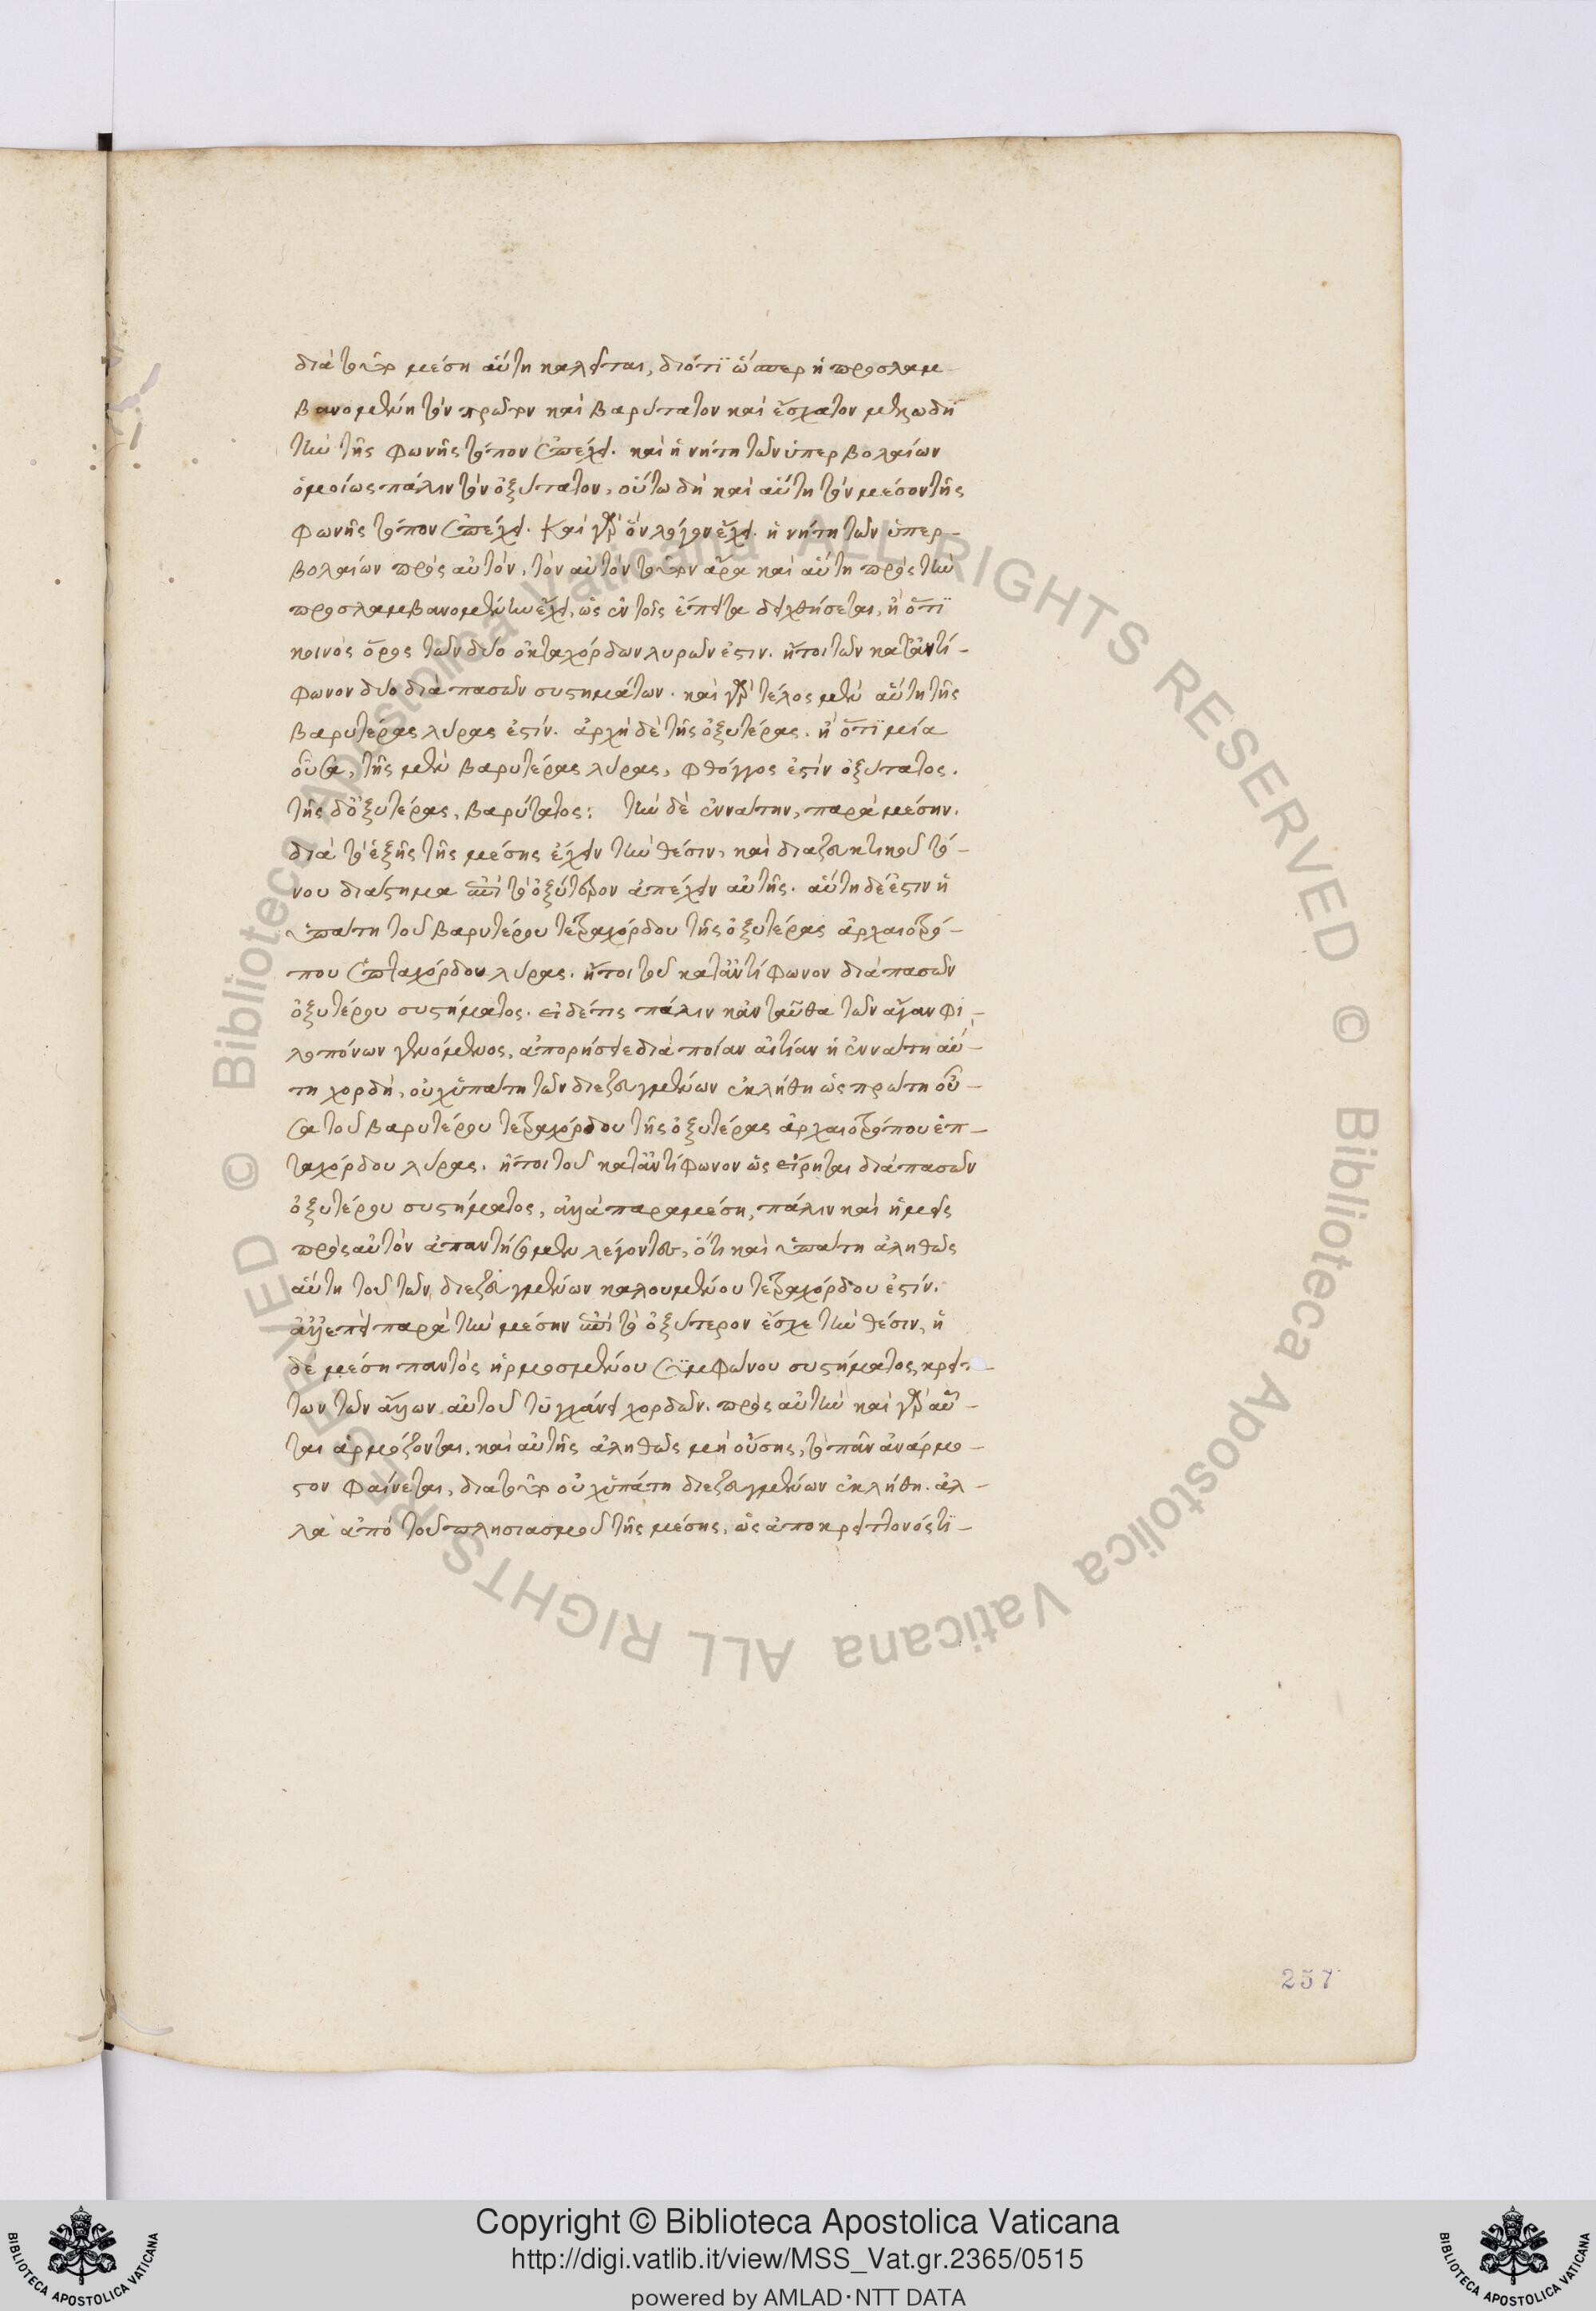 διὰ τοῦτο μέση αὕτη καλεῖται, διότι ὥσπερ ἡ προσλαμ-
βανομένη τὸν πρῶτον καὶ βαρύτατον καὶ ἔσχατον μελωδη
τὴν τῆς φωνῆς τόπον ἐπέχει. καὶ ἡ νήτη τῶν ὑπερβολαίων
ὁμοίως πάλιν τὸν ὀξύτατον, οὕτω δὴ καὶ αὕτη τὸν μέσον τῆς
φωνῆς τόπον ἐπέχει. καὶ γὰρ ὃν λόγον ἔχει ἡ νήτη τῶν ὑπερ-
βολαίων πρὸς αὐτὸν, τὸν αὐτὸν τοῦτον ἄρα καὶ αὕτη πρὸς τὴν
προσλαμβανομένην ἔχει, ὡς ἐν τοῖς ἔπειτα δειχθήσεται, ἢ ὅτι
κοινὸς ὅρος τῶν δύο ὀκταχόρδων λυρῶν ἐστιν. ἤτοι τῶν κατ' ἀντί-
φωνον δύο διὰ πασῶν συστημάτων. καὶ γὰρ τέλος μὲν αὕτη τῆς
βαρυτέρας λύρας ἐστίν. ἀρχὴ δὲ τῆς ὀξυτέρας. ἢ ὅτι μία
οὖσα, τῆς μὲν βαρυτέρας λύρας, φθόγγος ἐστὶν ὀξύτατος.
τῆς δ' ὀξυτέρας, βαρύτατος: τὴν δὲ ἐννάτην, παρὰ μέσην.
διὰ τὸ ἑξῆς τῆς μέσης ἔχειν τὴν θέσιν, καὶ διαζευκτικοῦ τό-
νου διάστημα ἐπὶ τὸ ὀξύτερον ἀπέχειν αὐτῆς. αὕτη δέ ἐστιν ἡ
ὑπάτη τοῦ βαρυτέρου τετραχόρδου τῆς ὀξυτέρας ἀρχαιοτρό-
που ἑπταχόρδου λύρας. ἤτοι τοῦ κατ' ἀντίφωνον διὰ πασῶν
ὀξυτέρου συστήματος. εἰ δέ τις πάλιν κἀνταῦθα τῶν ἄγαν φι-
λοπόνων γενόμενος, ἀπορήσειε διὰ ποίαν αἰτίαν ἡ ἐννάτη αὕ-
τη χορδὴ, οὐχ ὑπάτη τῶν διεζευγμένων ἐκλήθη ὡς πρώτη οὖ-
σα τοῦ βαρυτέρου τετραχόρδου τῆς ὀξυτέρας ἀρχαιοτρόπου ἑπ-
ταχόρδου λύρας. ἤτοι τοῦ κατ' ἀντίφωνον ὡς εἴρηται διὰ πασῶν
ὀξυτέρου συστήματος, ἀλλὰ παραμέση, πάλιν καὶ ἡμεῖς
πρὸς αὐτὸν ἀπαντήσομεν λέγοντες, ὅτι καὶ ὑπάτη ἀληθῶς
αὕτη τοῦ τῶν διεζευγμένων καλουμένου τετραχόρδου ἐστίν.
ἀλλ' ἐπεὶ παρὰ τὴν μέσην ἐπὶ τὸ ὀξύτερον ἔσχε τὴν θέσιν, ἡ
δὲ μέση παντὸς ἡρμοσμένου συμφώνου συστήματος, κρείτ-
των τῶν ἄλλων αὐτοῦ τυγχάνει χορδῶν. πρὸς αὐτὴν καὶ γὰρ αὗ-
ται ἁρμόζονται, καὶ αὐτῆς ἀληθῶς μὴ οὔσης, τὸ πᾶν ἀνάρμο-
στον φαίνεται, διὰ τοῦτο οὐχ ὑπάτη διεζευγμένων ἐκλήθη. ἀλ-
λὰ ἀπὸ τοῦ πλησιασμοῦ τῆς μέσης, ὡς ἀπὸ κρείττονός τι-
257
Copyright © Biblioteca Apostolica Vaticana
http://digi.vatlib.it/view/MSS_Vat.gr.2365/0515
powered by AMLAD·NTT DATA
BIBLIOTECA APOSTOLICA VATICANA
BIBLIOTECA APOSTOLICA VATICANA
© Biblioteca Apostolica Vaticana ALL RIGHTS RESERVED
© Biblioteca Apostolica Vaticana ALL RIGHTS RESERVED